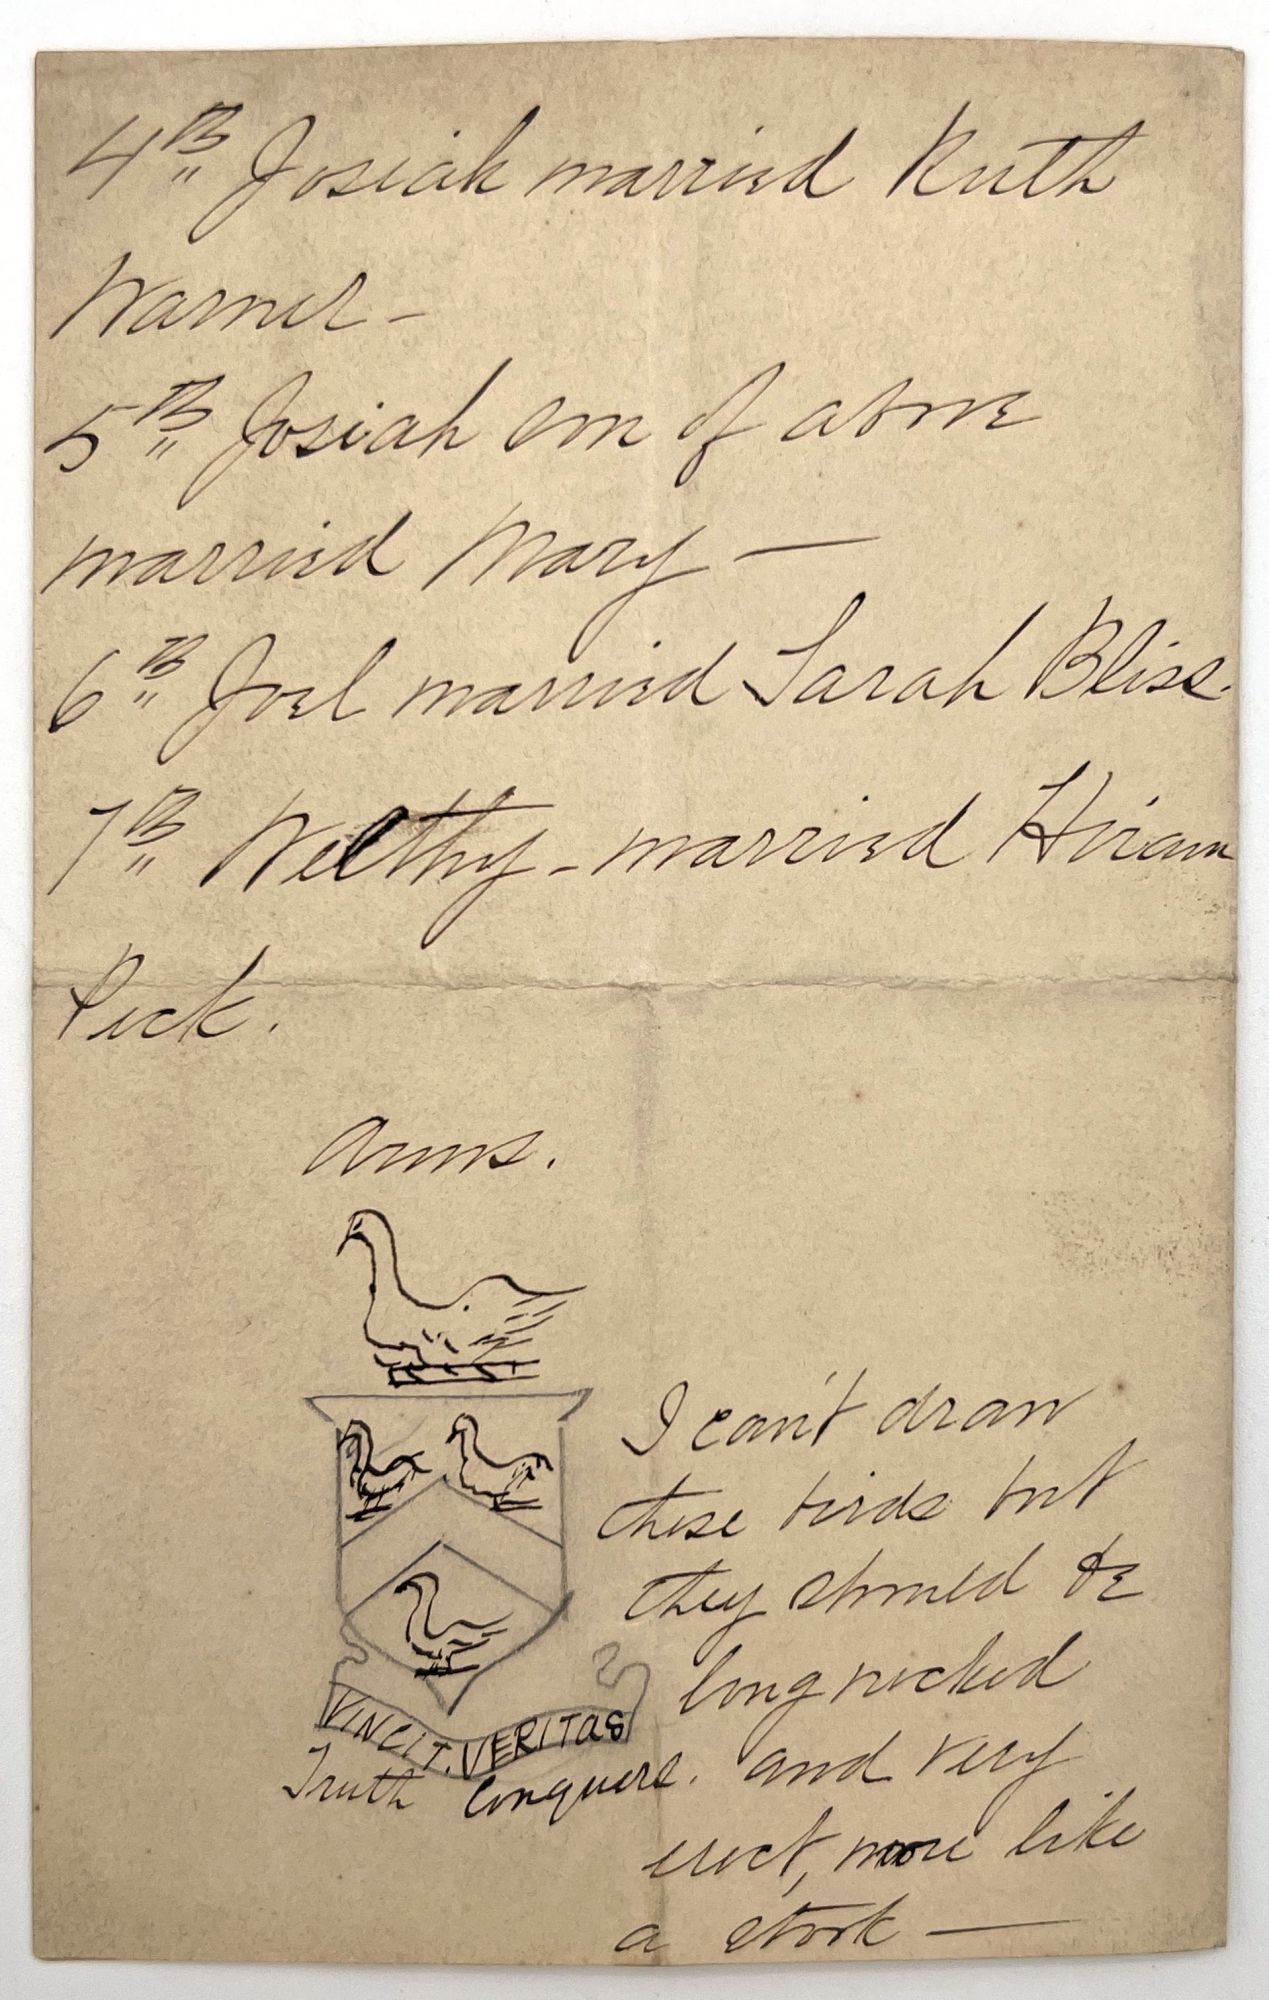 4th Josiah married Ruth
Warner -
5th Josiah son of above
married Mary —
6th Joel married Sarah Bliss.
7th Welthy - married Hiram
Peck.
Arms.
I can't draw
these birds but
they should be
long necked
and very
erect, more like
a stork —
VINCIT. VERITAS
Truth Conquers.